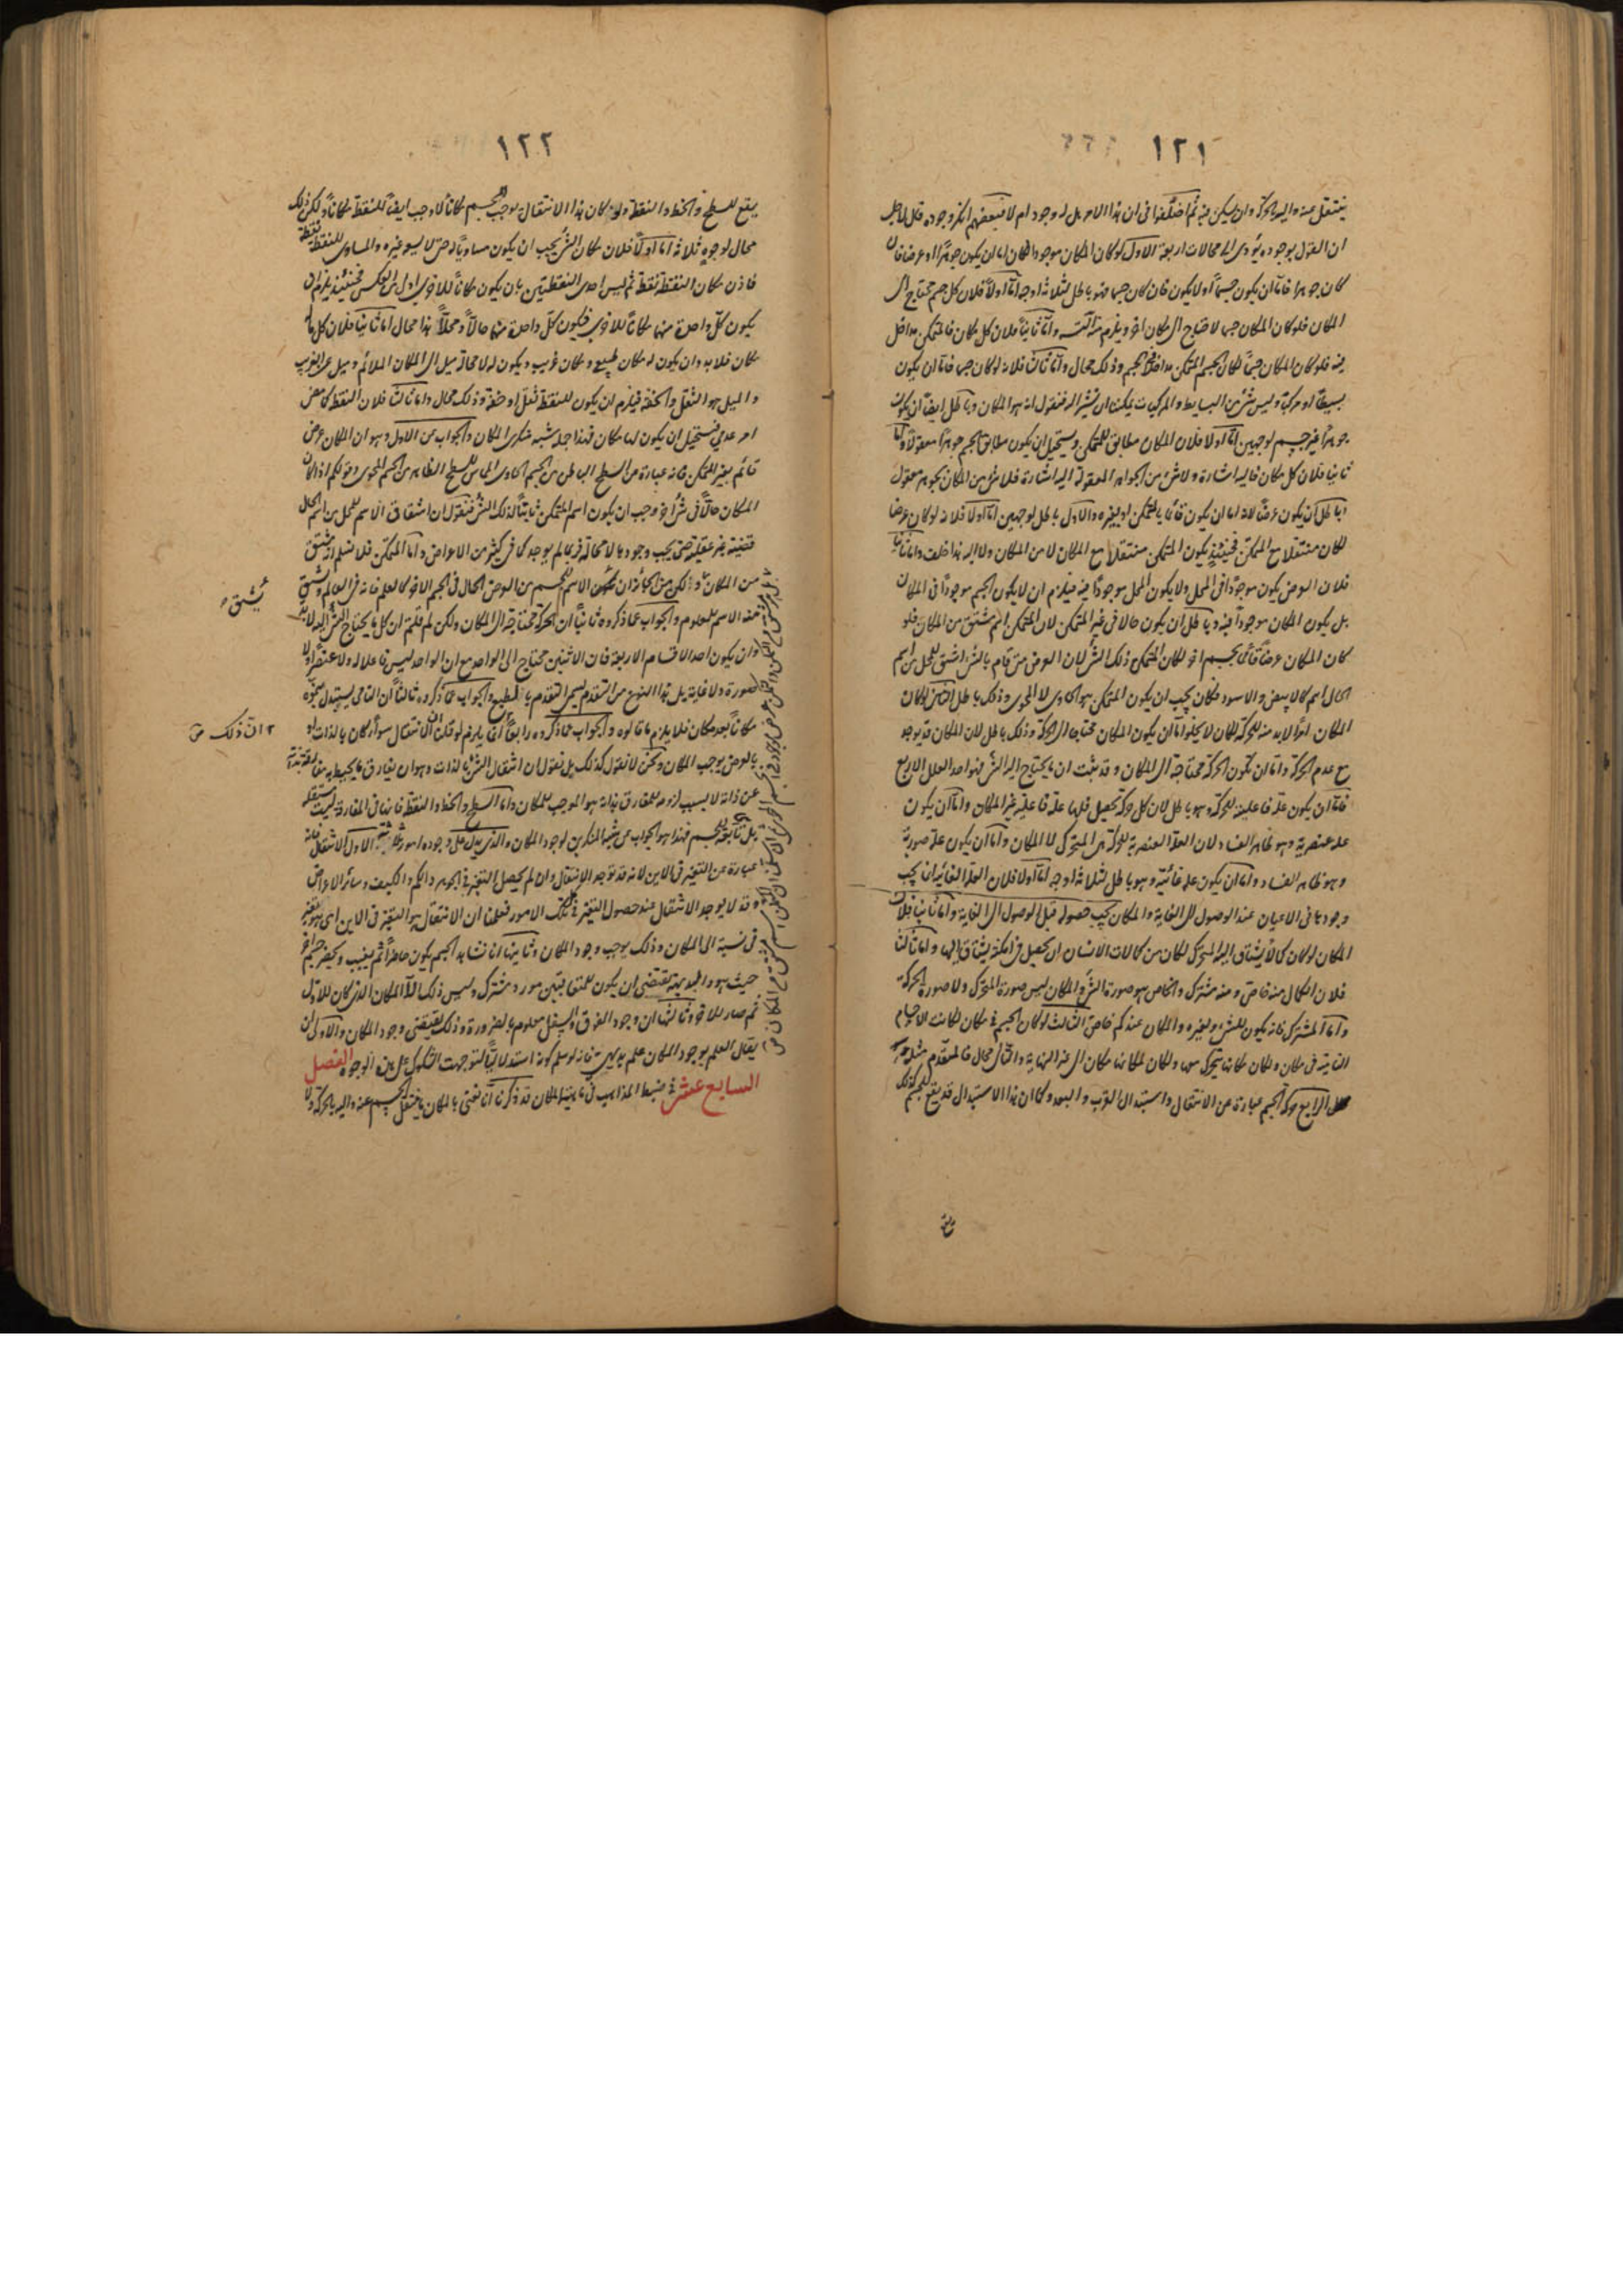 ١٢١
ينتقل عنه واليه بالحركة وان يسكن فيه ثم اختلفوا فى ان هذا الامر هل له وجود ام لا فبعضهم انكر وجوده قال لاجل
ان القول بوجوده يؤدى الى محالات اربعة الاول لو كان المكان موجودا لكان اما ان يكون جوهرا او عرضا فان
كان جوهرا فاما ان يكون جسما او لا يكون فان كان جسما فهو باطل لثلاثة اوجه اما اولا فلان كل جسم محتاج الى
المكان فلو كان المكان جسما لاحتاج الى مكان اخر ويلزم منه التسلسل واما ثانيا فلان كل مكان فالمتمكن مداخل
فيه فلو كان المكان جسما لكان الجسم المتمكن مداخلا لجسم وذلك محال واما ثالثا فلانه لو كان جسما فاما ان يكون
بسيطا او مركبا وليس شئ من البسايط والمركبات يمكننا ان نشير اليه فنقول انه هو المكان وباطل ايضا ان يكون
جوهرا غير جسم لوجهين اما اولا فلان المكان مطابق للمتمكن ويستحيل ان يكون مطابق الجسم جوهرا معقولا واما
ثانيا فلان كل مكان فاليه اشارة ولا شئ من الجواهر المعقولة اليه اشارة فلا شئ من المكان بجوهر معقول
وباطل ان يكون عرضا لانه اما ان يكون قائما بالمتمكن او بغيره والاول باطل لوجهين اما اولا فلانه لو كان عرضا
لكان منتقلا مع المتمكن فحينئذ يكون المتمكن منتقلا مع المكان لا من المكان ولا اليه هذا خلف واما ثانيا
فلان العرض يكون موجودا فى المحل ولا يكون المحل موجودا فيه فيلزم ان لا يكون الجسم موجودا فى المكان
بل يكون المكان موجودا فيه وباطل ان يكون حالا فى غير المتمكن لان المتمكن اسم مشتق من المكان فلو
كان المكان عرضا قائما بجسم اخر لكان المتمكن ذلك الشئ لان العرض متى قام بالشئ اشتق للمحل من اسم
الحال اسم كالابيض والاسود فكان يجب ان يكون المتمكن هو الحاوى لا المحوى وذلك باطل الثانى لو كان
المكان امرا لا بد منه للحركة لكان لا يخلو اما ان يكون المكان محتاجا الى الحركة وذلك باطل لان المكان قد يوجد
مع عدم الحركة واما ان تكون الحركة محتاجة الى المكان وقد ثبت ان ما يحتاج اليه الشئ فهو احد العلل الاربع
فاما ان يكون علة فاعلية للحركة وهو باطل لان كل حركة تحصل فلها علة فاعلية غير المكان واما ان يكون
علة عنصرية وهو ظاهر الفساد لان العلة العنصرية للحركة هى المتحرك لا المكان واما ان يكون علة صورية
وهو ظاهر الفساد واما ان يكون علة غائية وهو باطل لثلاثة اوجه اما اولا فلان العلة الغائية انما يجب
وجودها فى الاعيان عند الوصول الى الغاية والمكان يجب حصوله قبل الوصول الى الغاية واما ثانيا فلان
المكان لو كان كمالا يشتاق اليه المتحرك لكان من كمالات الانسان ان يحصل فى امكنة يشتاق اليها واما ثالثا
فلان الكمال منه خاص ومنه مشترك والخاص هو صورة الشئ والمكان ليس صورة المتحرك ولا صورة الحركة
واما المشترك فانه يكون للشئ ولغيره والمكان عندكم خاص الثالث لو كان الجسم فى مكان لكانت الاجسام
النامية فى مكان ولكان مكانها يتحرك معها ولكان لمكانها مكان الى غير النهاية والتالى محال فالمقدم مثله
الرابع حركة الجسم عبارة عن الانتقال واستبدال القرب والبعد وكما ان هذا الاستبدال قد يقع للجسم كذلك
١٢٢
يقع للسطح والخط والنقطة ولو كان هذا الانتقال يوجب للجسم مكانا لاوجب ايضا للنقطة مكانا ولكن ذلك
محال لوجوه ثلاثة اما اولا فلان مكان الشئ يجب ان يكون مساويا له حتى لا يسع غيره والمساوى للنقطة نقطة
فاذن مكان النقطة نقطة ثم ليس احدى النقطتين بان يكون مكانا للاخرى اولى من العكس فحينئذ يلزم ان
يكون كل واحدة منهما مكانا للاخرى فيكون كل واحدة منهما حالا ومحلا هذا محال اما ثانيا فلان كل ما له
مكان فلا بد وان يكون له مكان طبيعى ومكان غريب ويكون له لا محالة ميل الى المكان الملائم وميل عن الغريب
والميل هو الثقل والخفة فيلزم ان يكون للنقطة ثقل او خفة وذلك محال واما ثالثا فلان النقطة كما مضى
امر عدمى فيستحيل ان يكون لها مكان فهذا جملة شبه منكرى المكان والجواب عن الاول وهو ان المكان عرض
قائم بغير المتمكن فانه عبارة عن السطح الباطن من الجسم الحاوى المماس للسطح الظاهر من الجسم المحوى وقولكم اذا كان
المكان حالا فى شئ اخر وجب ان يكون اسم المتمكن ثابتا لذلك الشئ فنقول ان اشتقاق الاسم للمحل من اسم الحال
قضية غير عقلية حتى يجب وجودها لا محالة فربما لم يوجد كما فى كثير من الاعراض واما المتمكن فلا نسلم انه مشتق
من المكان ولكن من الجائز ان الاسم للجسم من العرض الحال فى الجسم الاخر كالعلم فانه فى العالم ويشتق
منه الاسم للمعلوم والجواب عما ذكروه ثانيا ان الحركة محتاجة الى المكان ولكن لم قلتم ان كل ما يحتاج الشئ اليه لا بد
وان يكون احد الاقسام الاربعة فان الاثنين محتاج الى الواحد مع ان الواحد ليس فاعلا له ولا عنصرا ولا
صورة ولا غاية بل هذا النوع من التقدم يسمى التقدم بالطبع والجواب عما ذكروه ثالثا ان النامى يستبدل بنموه
مكانا بعد مكان فلا يلزم ما قالوه والجواب عما ذكروه رابعا انما يلزم لو قلنا ان الانتقال سواء كان بالذات او
بالعرض يوجب المكان ونحن لا نقول كذلك بل نقول ان انتقال الشئ بالذات وهو ان يفارق ما يحيط به
عن ذاته لا بسبب لزومه للمفارق بذاته هو الموجب للمكان واما السطح والخط والنقطة فانها فى المفارقة ليست مستقلة
بل تابعة للجسم فهذا هو الجواب عن شبه المنكرين لوجود المكان والذى يدل على وجوده امور ثلثة الاول الانتقال فانه
عبارة عن التغير فى الاين لانه قد توجد الانتقال وان لم يحصل التغير فى الجوهر والكم والكيف وسائر الاعراض
وقد لا يوجد الانتقال عند حصول التغير فى تلك الامور فعلمنا ان الانتقال هو التغير فى الاين اى هو تغير
فى نسبة الى المكان وذلك يوجب وجود المكان وثانيها انا نشاهد الجسم يكون حاضرا ثم يغيب ويحضر جسم اخر
حيث هو والبديهة تقتضى ان يكون للمتعاقبين مورد مشترك وليس ذلك الا المكان الذى كان للاول
ثم صار للاخر وثالثها ان وجود الفوق والسفل معلوم بالضرورة وذلك يقتضى وجود المكان والاولى ان
يقال العلم بوجود المكان علم بديهى فانه لو سلم كونه استدلاليا لتوجهت الشكوك على هذه الوجوه الفصل
السابع عشر فى ضبط المذاهب فى ماهية المكان قد ذكرنا انا نعنى بالمكان ما ينتقل الجسم عنه واليه بالحركة ولا
يشتق
ان ذلك